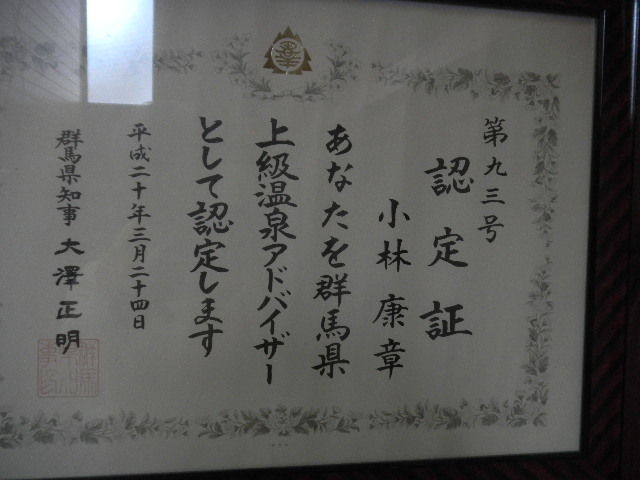 第九三号
認定証
小林康章
あなたを群馬県
上級温泉アドバイザー
として認定します
平成二十年三月二十四日
群馬県知事 大澤正明